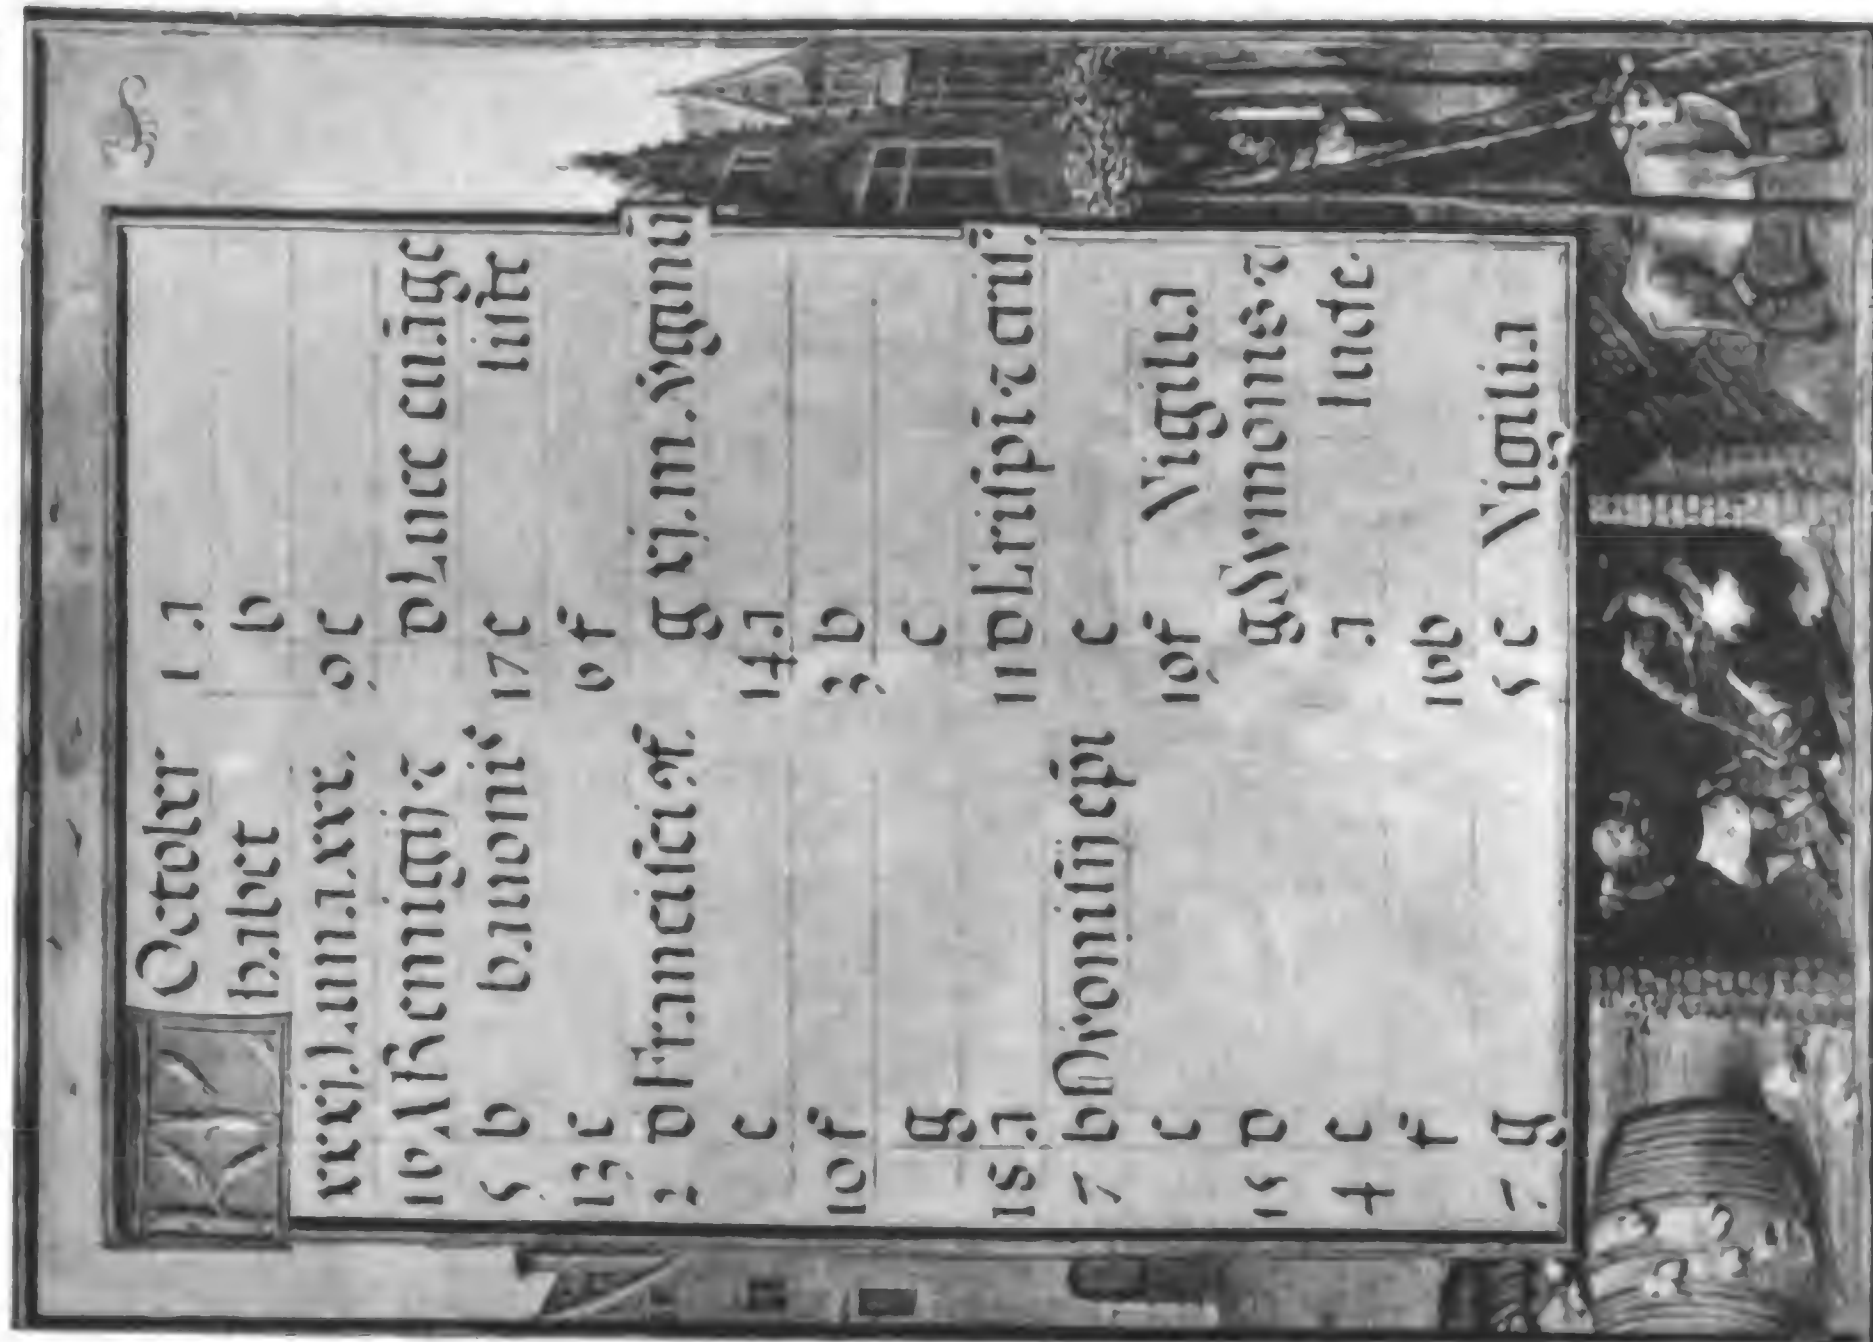 October
habet
xxxi. Luna. xxx.
16 A Remigii ⁊
5 b bauonis
13 c
2 d Francisci 9f.
e
10 f
g
18 a
7 b Dionisii epi
c
15 d
4 e
f
g
1 a
b
9 c
d Luce euāge
17 e liste
6 f
g xi. m. v̇ginū
14 a
3 b
c
11 d Crispi. ⁊
e
19 f Vigilia
g Symonis ⁊
a Iude.
16 b
5 c Vigilia